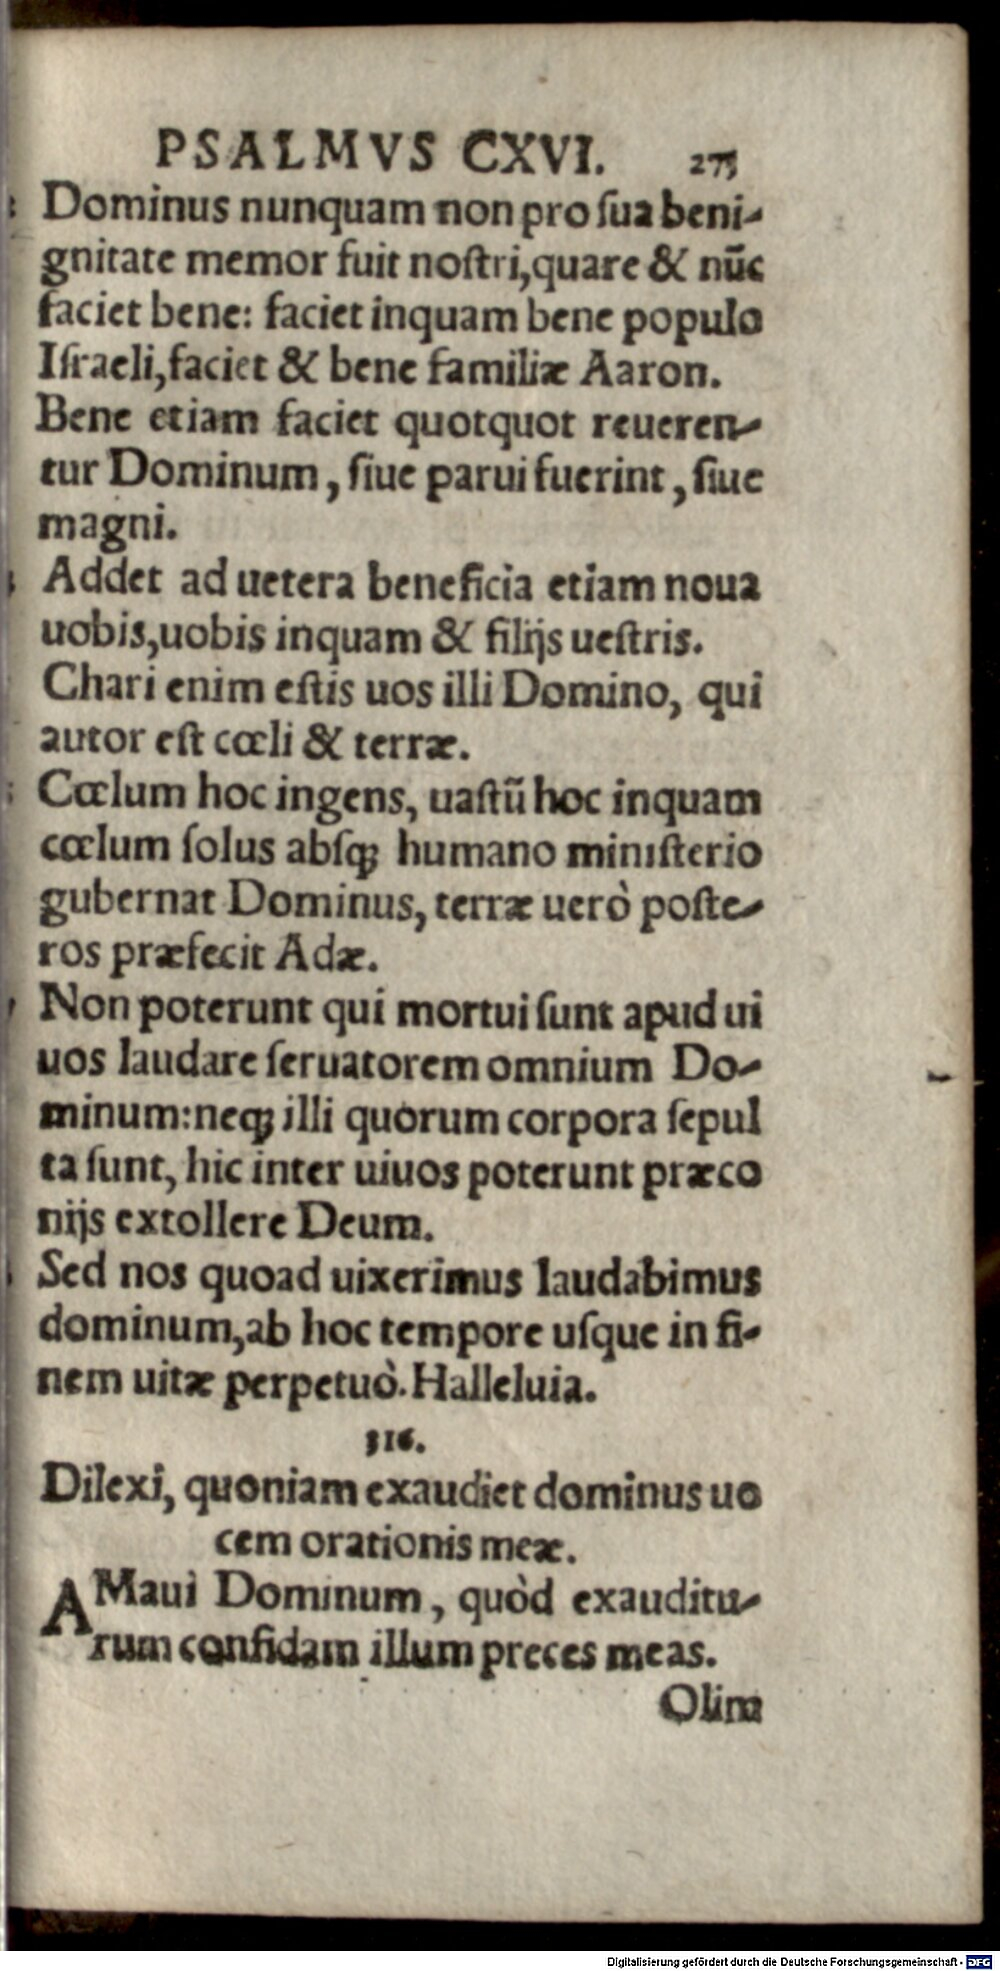 PSALMVS CXVI. 275
Dominus nunquam non pro ſua beni-
gnitate memor fuit noſtri, quare & nūc
faciet bene: faciet inquam bene populo
Iſraeli, faciet & bene familiæ Aaron.
Bene etiam faciet quotquot reueren-
tur Dominum, ſiue parui fuerint, ſiue
magni.
Addet ad uetera beneficia etiam noua
uobis, uobis inquam & filijs ueſtris.
Chari enim eſtis uos illi Domino, qui
autor eſt cœli & terræ.
Cœlum hoc ingens, uaſtū hoc inquam
cœlum ſolus abſq; humano miniſterio
gubernat Dominus, terræ uerò poſte-
ros præfecit Adæ.
Non poterunt qui mortui ſunt apud ui
uos laudare ſeruatorem omnium Do-
minum: neq; illi quorum corpora ſepul
ta ſunt, hic inter uiuos poterunt præco
nijs extollere Deum.
Sed nos quoad uixerimus laudabimus
dominum, ab hoc tempore uſque in fi-
nem uitæ perpetuò. Halleluia.
116.
Dilexi, quoniam exaudiet dominus uo
cem orationis meæ.
AMaui Dominum, quòd exauditu-
rum confidam illum preces meas.
Olim
Digitalisierung gefördert durch die Deutsche Forschungsgemeinschaft - DFG